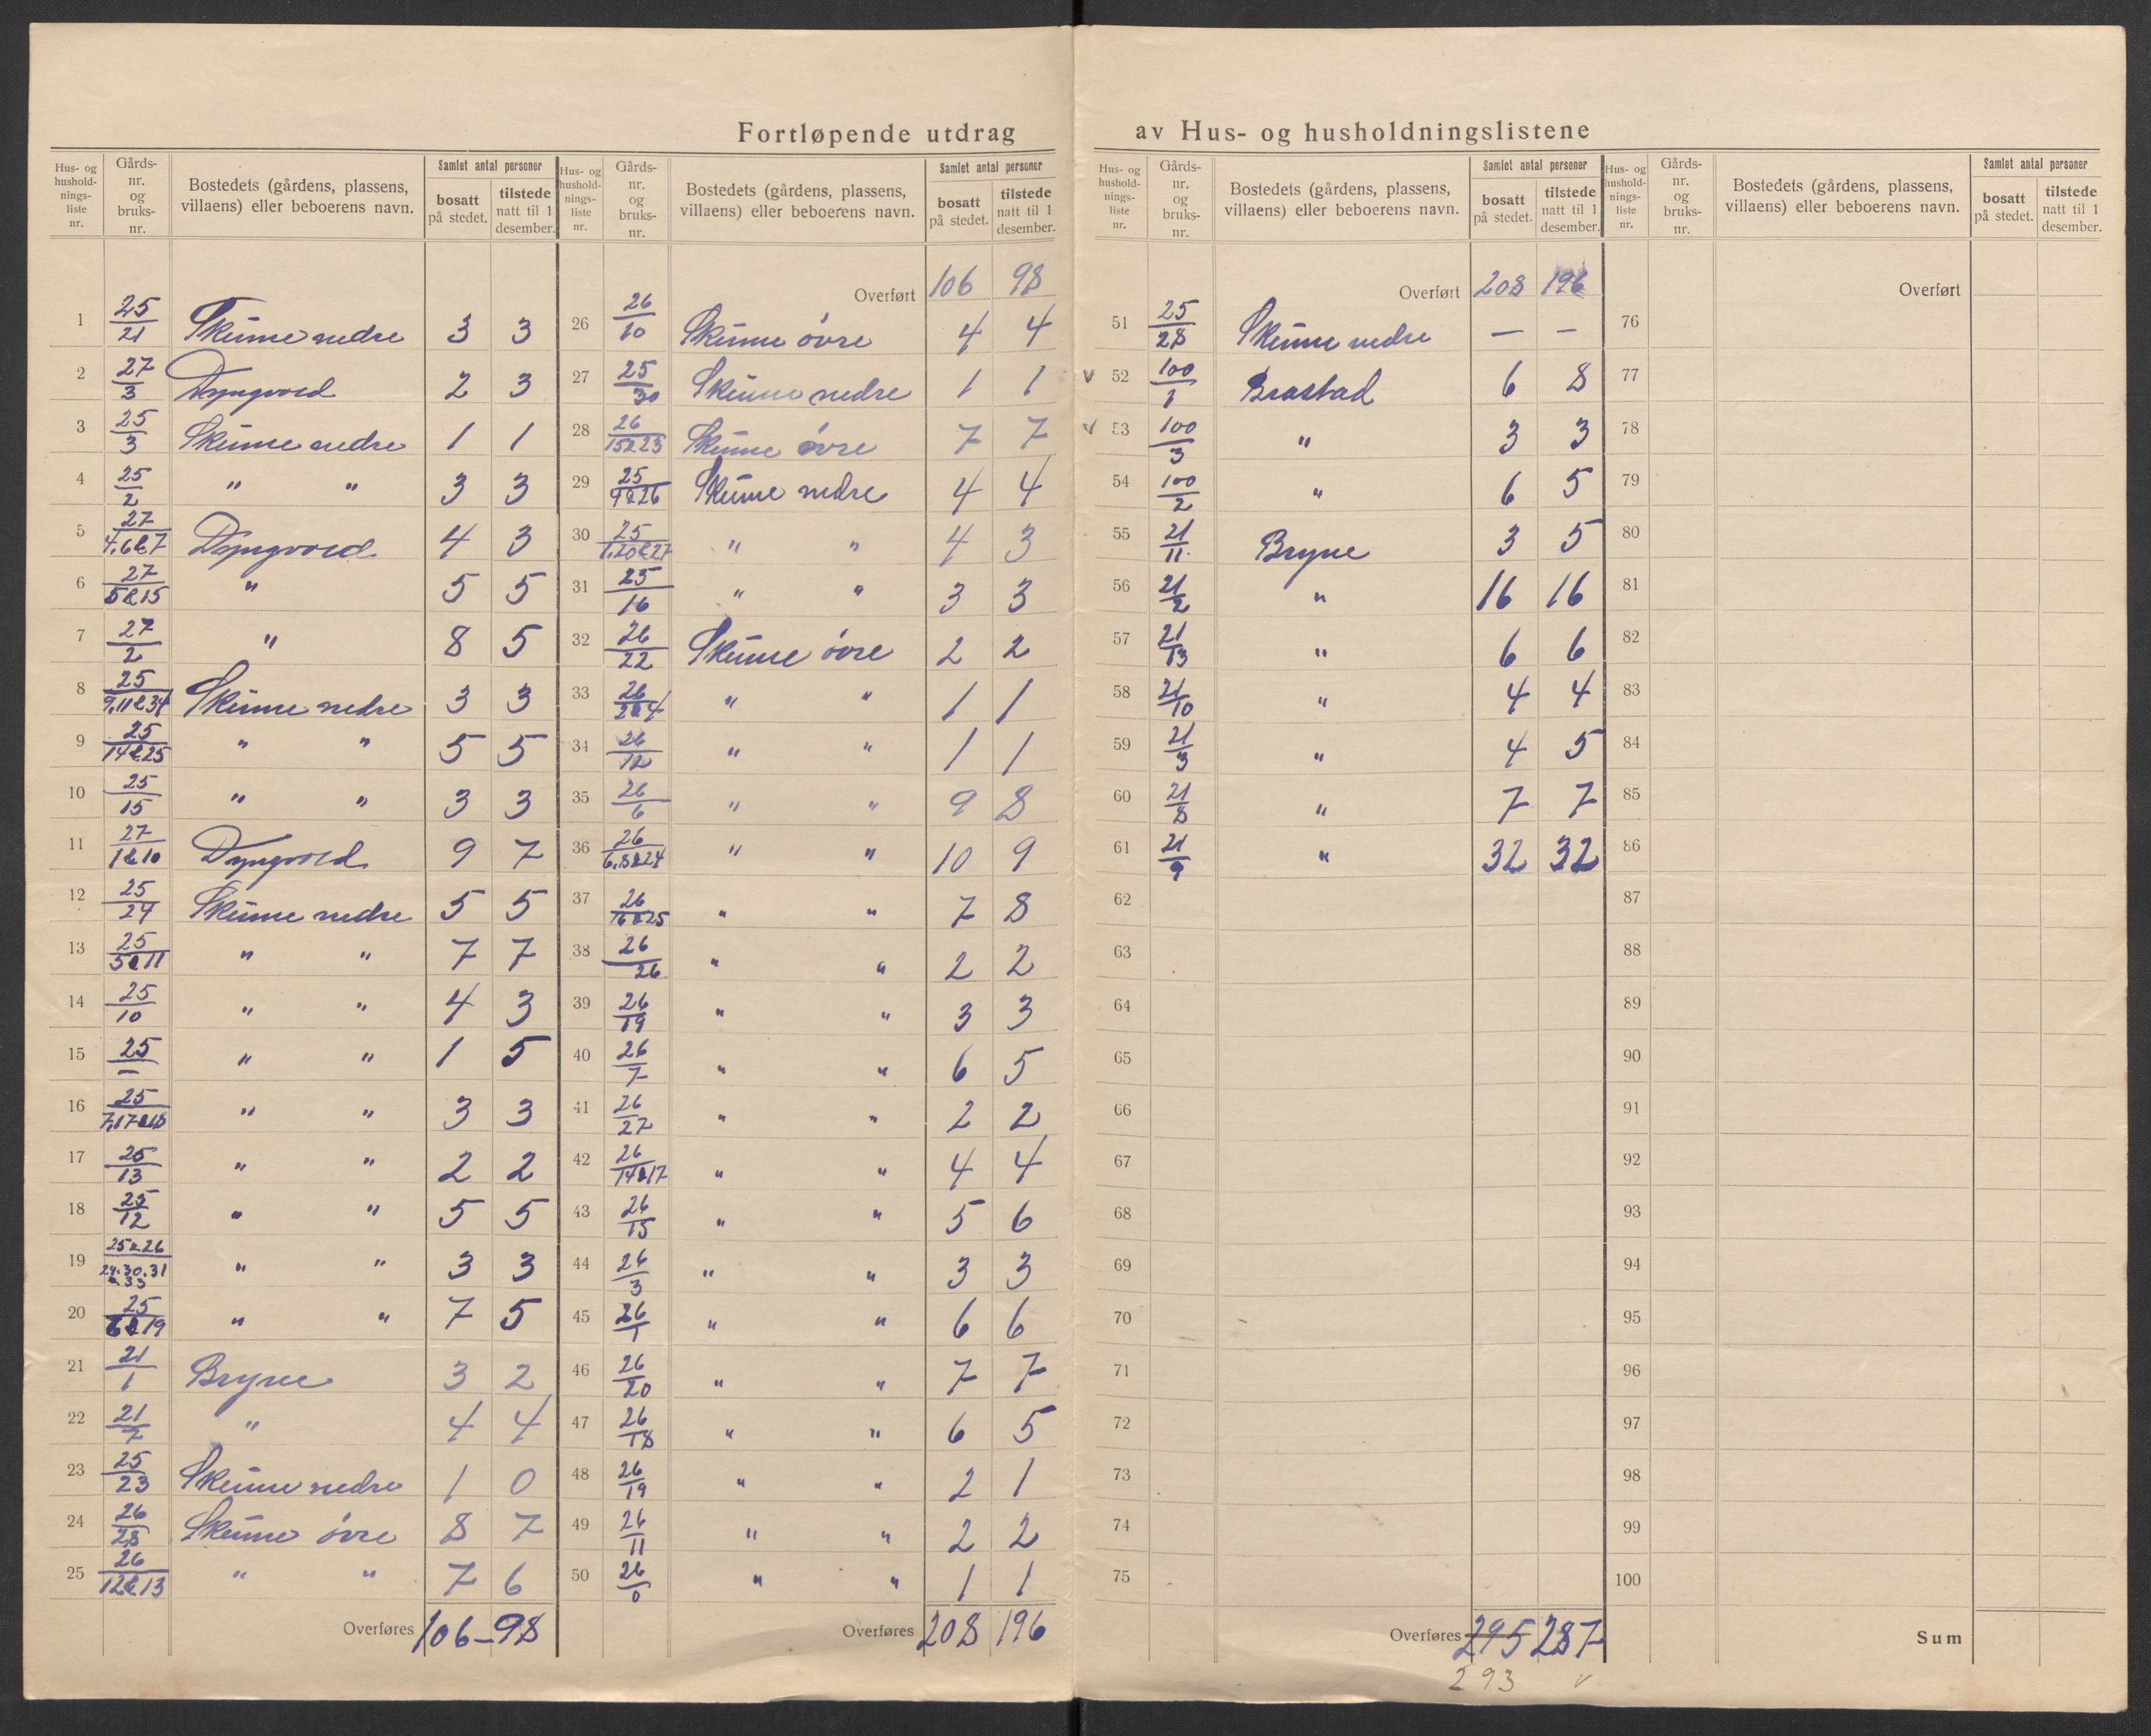 Fortløpende utdrag av Hus- og husholdningslistene
Hus- og hushold- nings- liste nr. | Gårds- nr. og bruks- nr. | Bostedets (gårdens, plassens, villaens) eller beboerens navn. | Samlet antal personer | bosatt på stedet. | tilstede natt til 1 desember.
1 25/21 Skeime nedre 3 3
2 27/3 Dyngvold 2 3
3 25/3 Skeime nedre 1 1
4 25/2 " " 3 3
5 27/4.6&7 Dyngvold 4 3
6 27/5&15 " 5 5
7 27/2 " 8 5
8 25/9.11&34 Skeime nedre 3 3
9 25/14&25 " " 5 5
10 25/15 " " 3 3
11 27/1&10 Dyngvold 9 7
12 25/24 Skeime nedre 5 5
13 25/5&11 " " 7 7
14 25/10 " " 4 3
15 25/– " " 1 5
16 25/7,17&18 " " 3 3
17 25/13 " " 2 2
18 25/12 " " 5 5
19 25&26/29.30.31 & 33 " " 3 3
20 25/6&19 " " 7 5
21 21/1 Bryne 3 2
22 21/7 " 4 4
23 25/23 Skeime nedre 1 0
24 26/28 Skeime övre 8 7
25 26/12&13 " " 7 6
Overføres 106-98
Hus- og hushold- nings- liste nr. | Gårds- nr. og bruks- nr. | Bostedets (gårdens, plassens, villaens) eller beboerens navn. | Samlet antal personer | bosatt på stedet. | tilstede natt til 1 desember.
Overført 106 98
26 26/10 Skeime övre 4 4
27 25/30 Skeime nedre 1 1
28 26/15&23 Skeime övre 7 7
29 25/4&26 Skeime nedre 4 4
30 25/1,20&27 " " 4 3
31 25/16 " " 3 3
32 26/22 Skeime övre 2 2
33 26/2&4 " " 1 1
34 26/12 " " 1 1
35 26/6 " " 9 8
36 26/6.8&24 " " 10 9
37 26/16&25 " " 7 8
38 26/26 " " 2 2
39 26/19 " " 3 3
40 26/7 " " 6 5
41 26/27 " " 2 2
42 26/14&17 " " 4 4
43 26/15 " " 5 6
44 26/3 " " 3 3
45 26/1 " " 6 6
46 26/20 " " 7 7
47 26/18 " " 6 5
48 26/19 " " 2 1
49 26/11 " " 2 2
50 26/0 " " 1 1
Overføres 208 196
Hus- og hushold- nings- liste nr. | Gårds- nr. og bruks- nr. | Bostedets (gårdens, plassens, villaens) eller beboerens navn. | Samlet antal personer | bosatt på stedet. | tilstede natt til 1 desember.
Overført 208 196
51 25/28 Skeime nedre – –
v 52 100/1 Brastad 6 8
v 53 100/3 " 3 3
54 100/2 " 6 5
55 21/11 Bryne 3 5
56 21/2 " 16 16
57 21/13 " 6 6
58 21/10 " 4 4
59 21/3 " 4 5
60 21/8 " 7 7
61 21/9 " 32 32
62
63
64
65
66
67
68
69
70
71
72
73
74
75
Overføres 295 287
293 v
Hus- og hushold- nings- liste nr. | Gårds- nr. og bruks- nr. | Bostedets (gårdens, plassens, villaens) eller beboerens navn. | Samlet antal personer | bosatt på stedet. | tilstede natt til 1 desember.
Overført
76
77
78
79
80
81
82
83
84
85
86
87
88
89
90
91
92
93
94
95
96
97
98
99
100
Sum